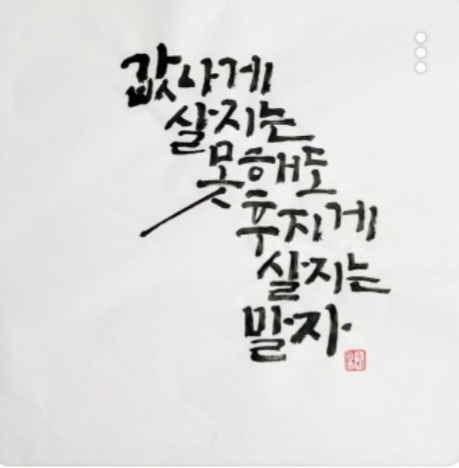 값나게
살지는
못해도
후지게
살지는
말자.